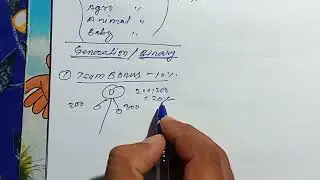 Agro "
Animal "
Baby "
Generation/Binary
① Team Bonus - 10%
U 200:200
200 300 = 20/-